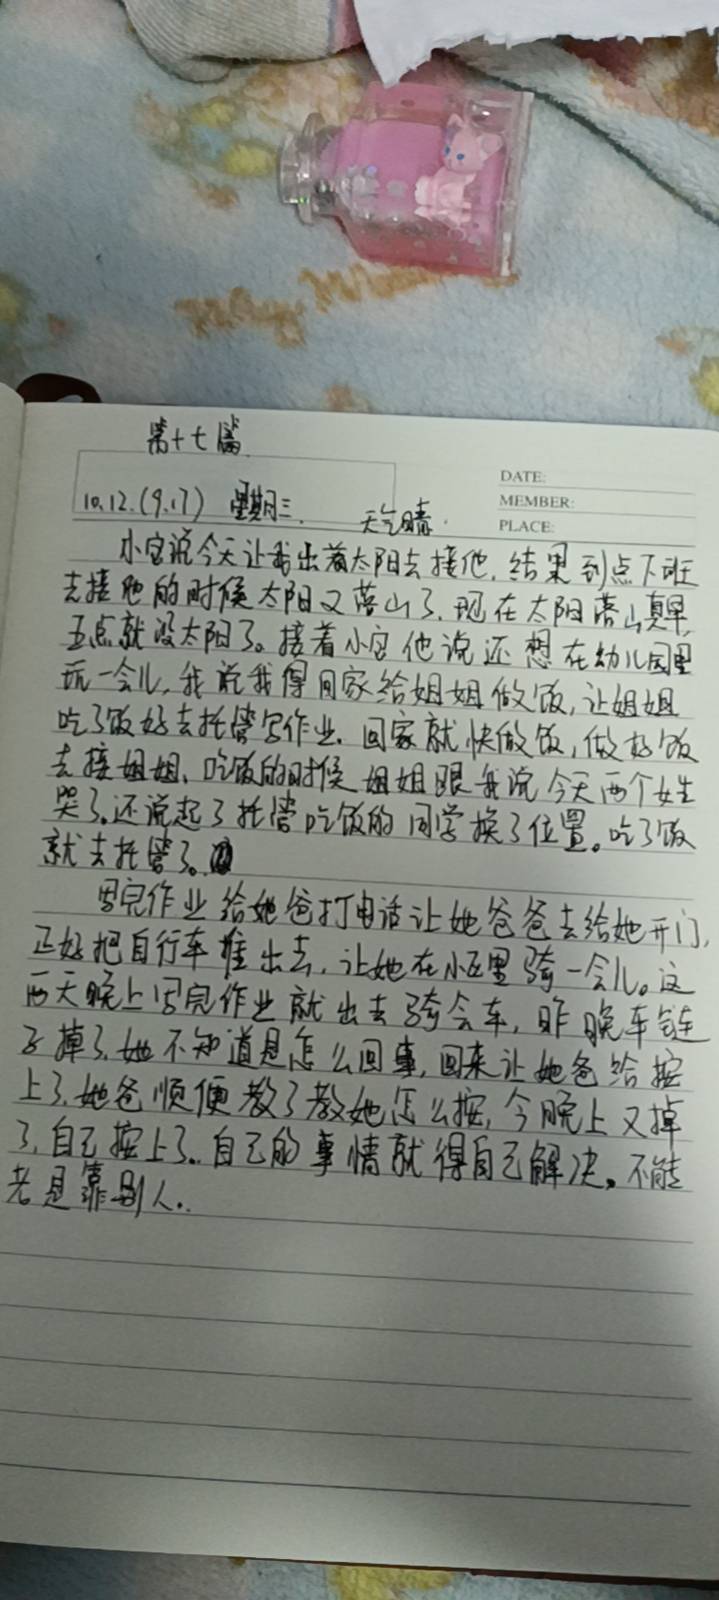 第十七篇
DATE:
MEMBER:
PLACE:
10.12.(9.17) 星期三. 天气晴.
小宝说今天让我出着太阳去接他,结果到点下班
去接他的时候太阳又落山了,现在太阳落山真早,
五点就没太阳了。接着小宝他说还想在幼儿园里
玩一会儿,我说我得回家给姐姐做饭,让姐姐
吃了饭好去托管写作业.回家就快做饭,做好饭
去接姐姐、吃饭的时候姐姐跟我说今天两个女生
哭了。还说起了托管吃饭的同学换了位置。吃了饭
就去托管了。
写完作业给她爸打电话让她爸爸去给她开门,
正好把自行车推出去,让她在小区里骑一会儿。这
两天晚上写完作业就出去骑会车,昨晚车链
子掉了,她不知道是怎么回事,回来让她爸给按
上了,她爸顺便教了教她怎么按,今晚上又掉
了,自己按上了。自己的事情就得自己解决。不能
老是靠别人.